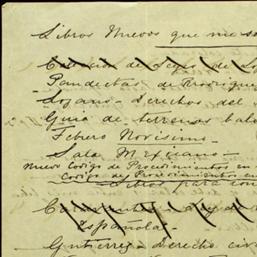 Libros Nuevos que me so
Coleccion de Leyes de Lo
Pandectas de Rodrigue
Lozano - Derechos del
Guia de terrenos bald
Febrero Novisimo -
Sala Mexicano -
Nuevo Codigo de Procedimientos en
Codigo de Procedimientos en
Libros para con
Española -
Gutierrez - Derecho civ